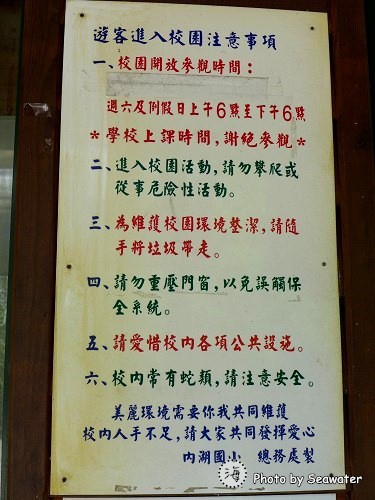 遊客進入校園注意事項
一、校園開放參觀時間：
週六及例假日上午6點至下午6點
*學校上課時間,謝絕參觀*
二、進入校園活動,請勿攀爬或
從事危險性活動。
三、為維護校園環境整潔,請隨
手將垃圾帶走。
四、請勿重壓門窗,以免誤觸保
全系統。
五、請愛惜校內各項公共設施。
六、校內常有蛇類,請注意安全。
美麗環境需要你我共同維護
校內人手不足,請大家共同發揮愛心
內湖國小 總務處製
海 Photo by Seawater